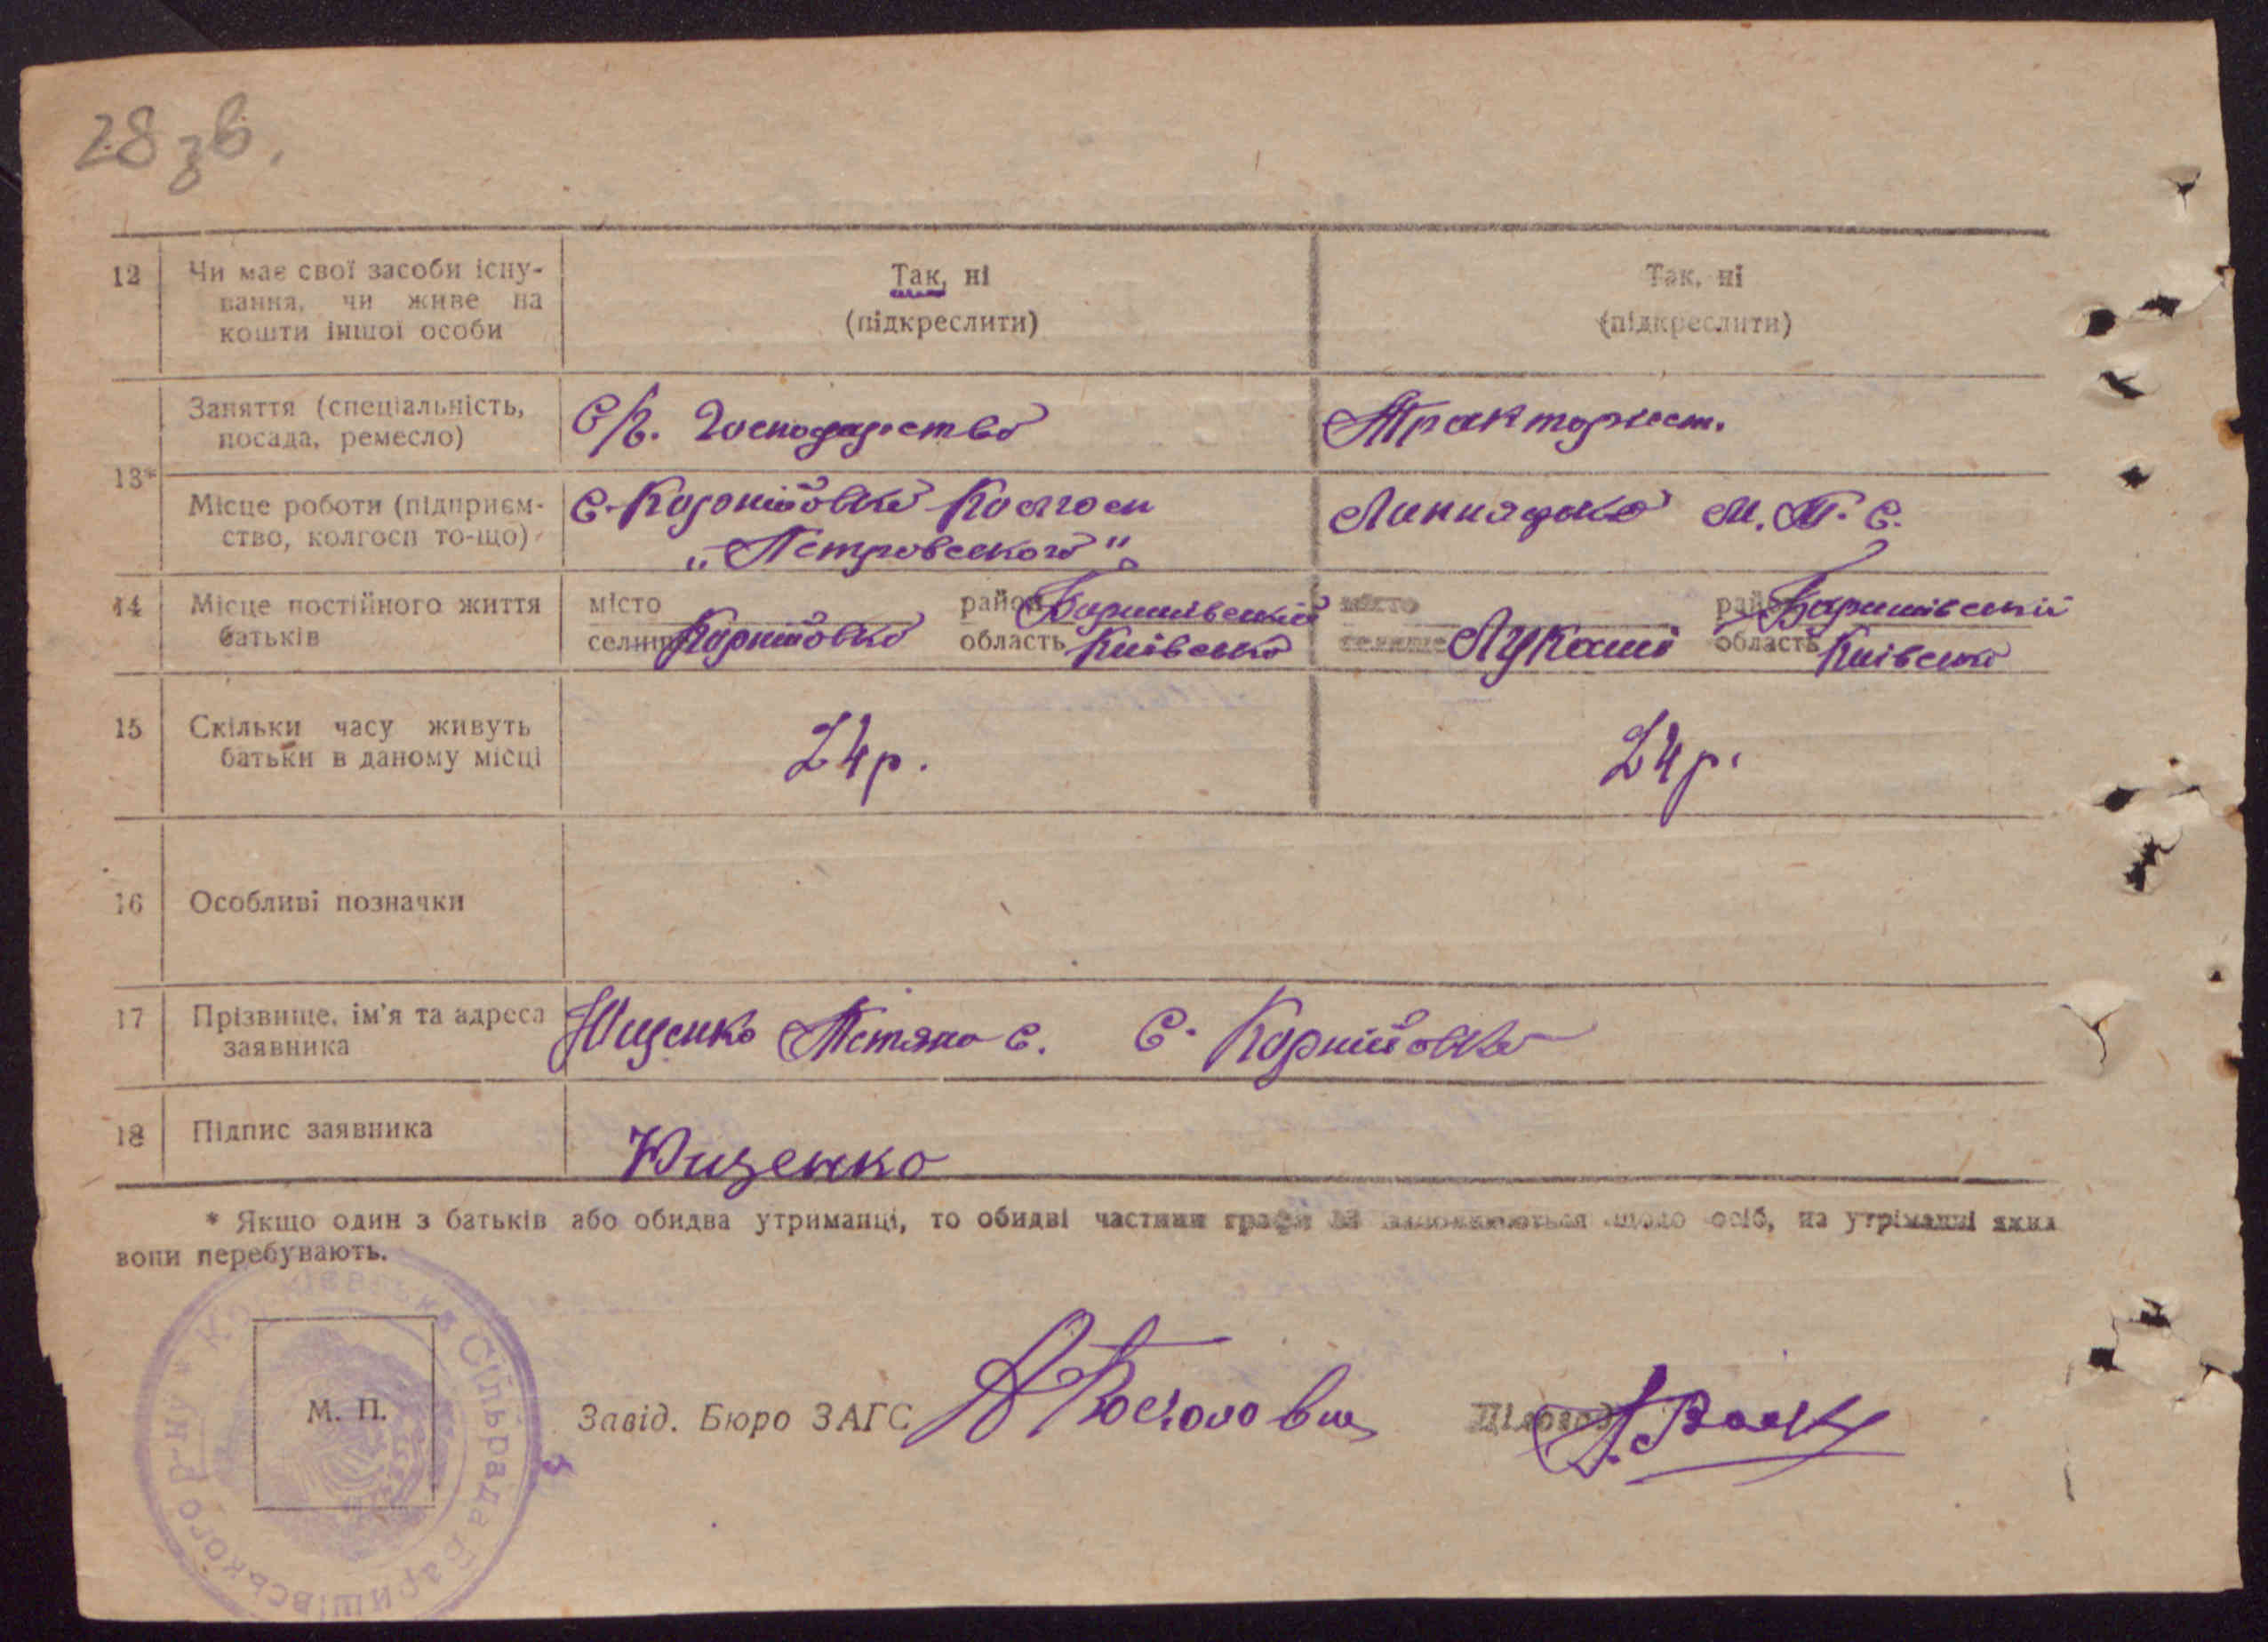 28 зв.
12 Чи має свої засоби існу- Так, ні Так, ні
вання, чи живе на (підкреслити) (підкреслити)
кошти іншої особи
13*
Заняття (спеціальність, С/г. Господарство Тракторист.
посада, ремесло)
Місце роботи (підприєм- С. Корнійовка Колгосп М. Т. С.
ство, колгосп то-що) „Петровського"
14 Місце постійного життя місто район Баришівський місто район Баришівський
батьків селище Корнійовка область Київська селище Лукаші область Київська
15 Скільки часу живуть 24 р. 24 р.
батьки в даному місці
16 Особливі позначки
17 Прізвище, ім'я та адреса Ющенко с. Корнійовка
заявника
18 Підпис заявника Ющенко
* Якщо один з батьків або обидва утриманці, то обидві частини графи 13 виповнюються щодо осіб, на утріманні яких
вони перебувають.
Сільрада Баришівського р-ну
М. П.
Завід. Бюро ЗАГС